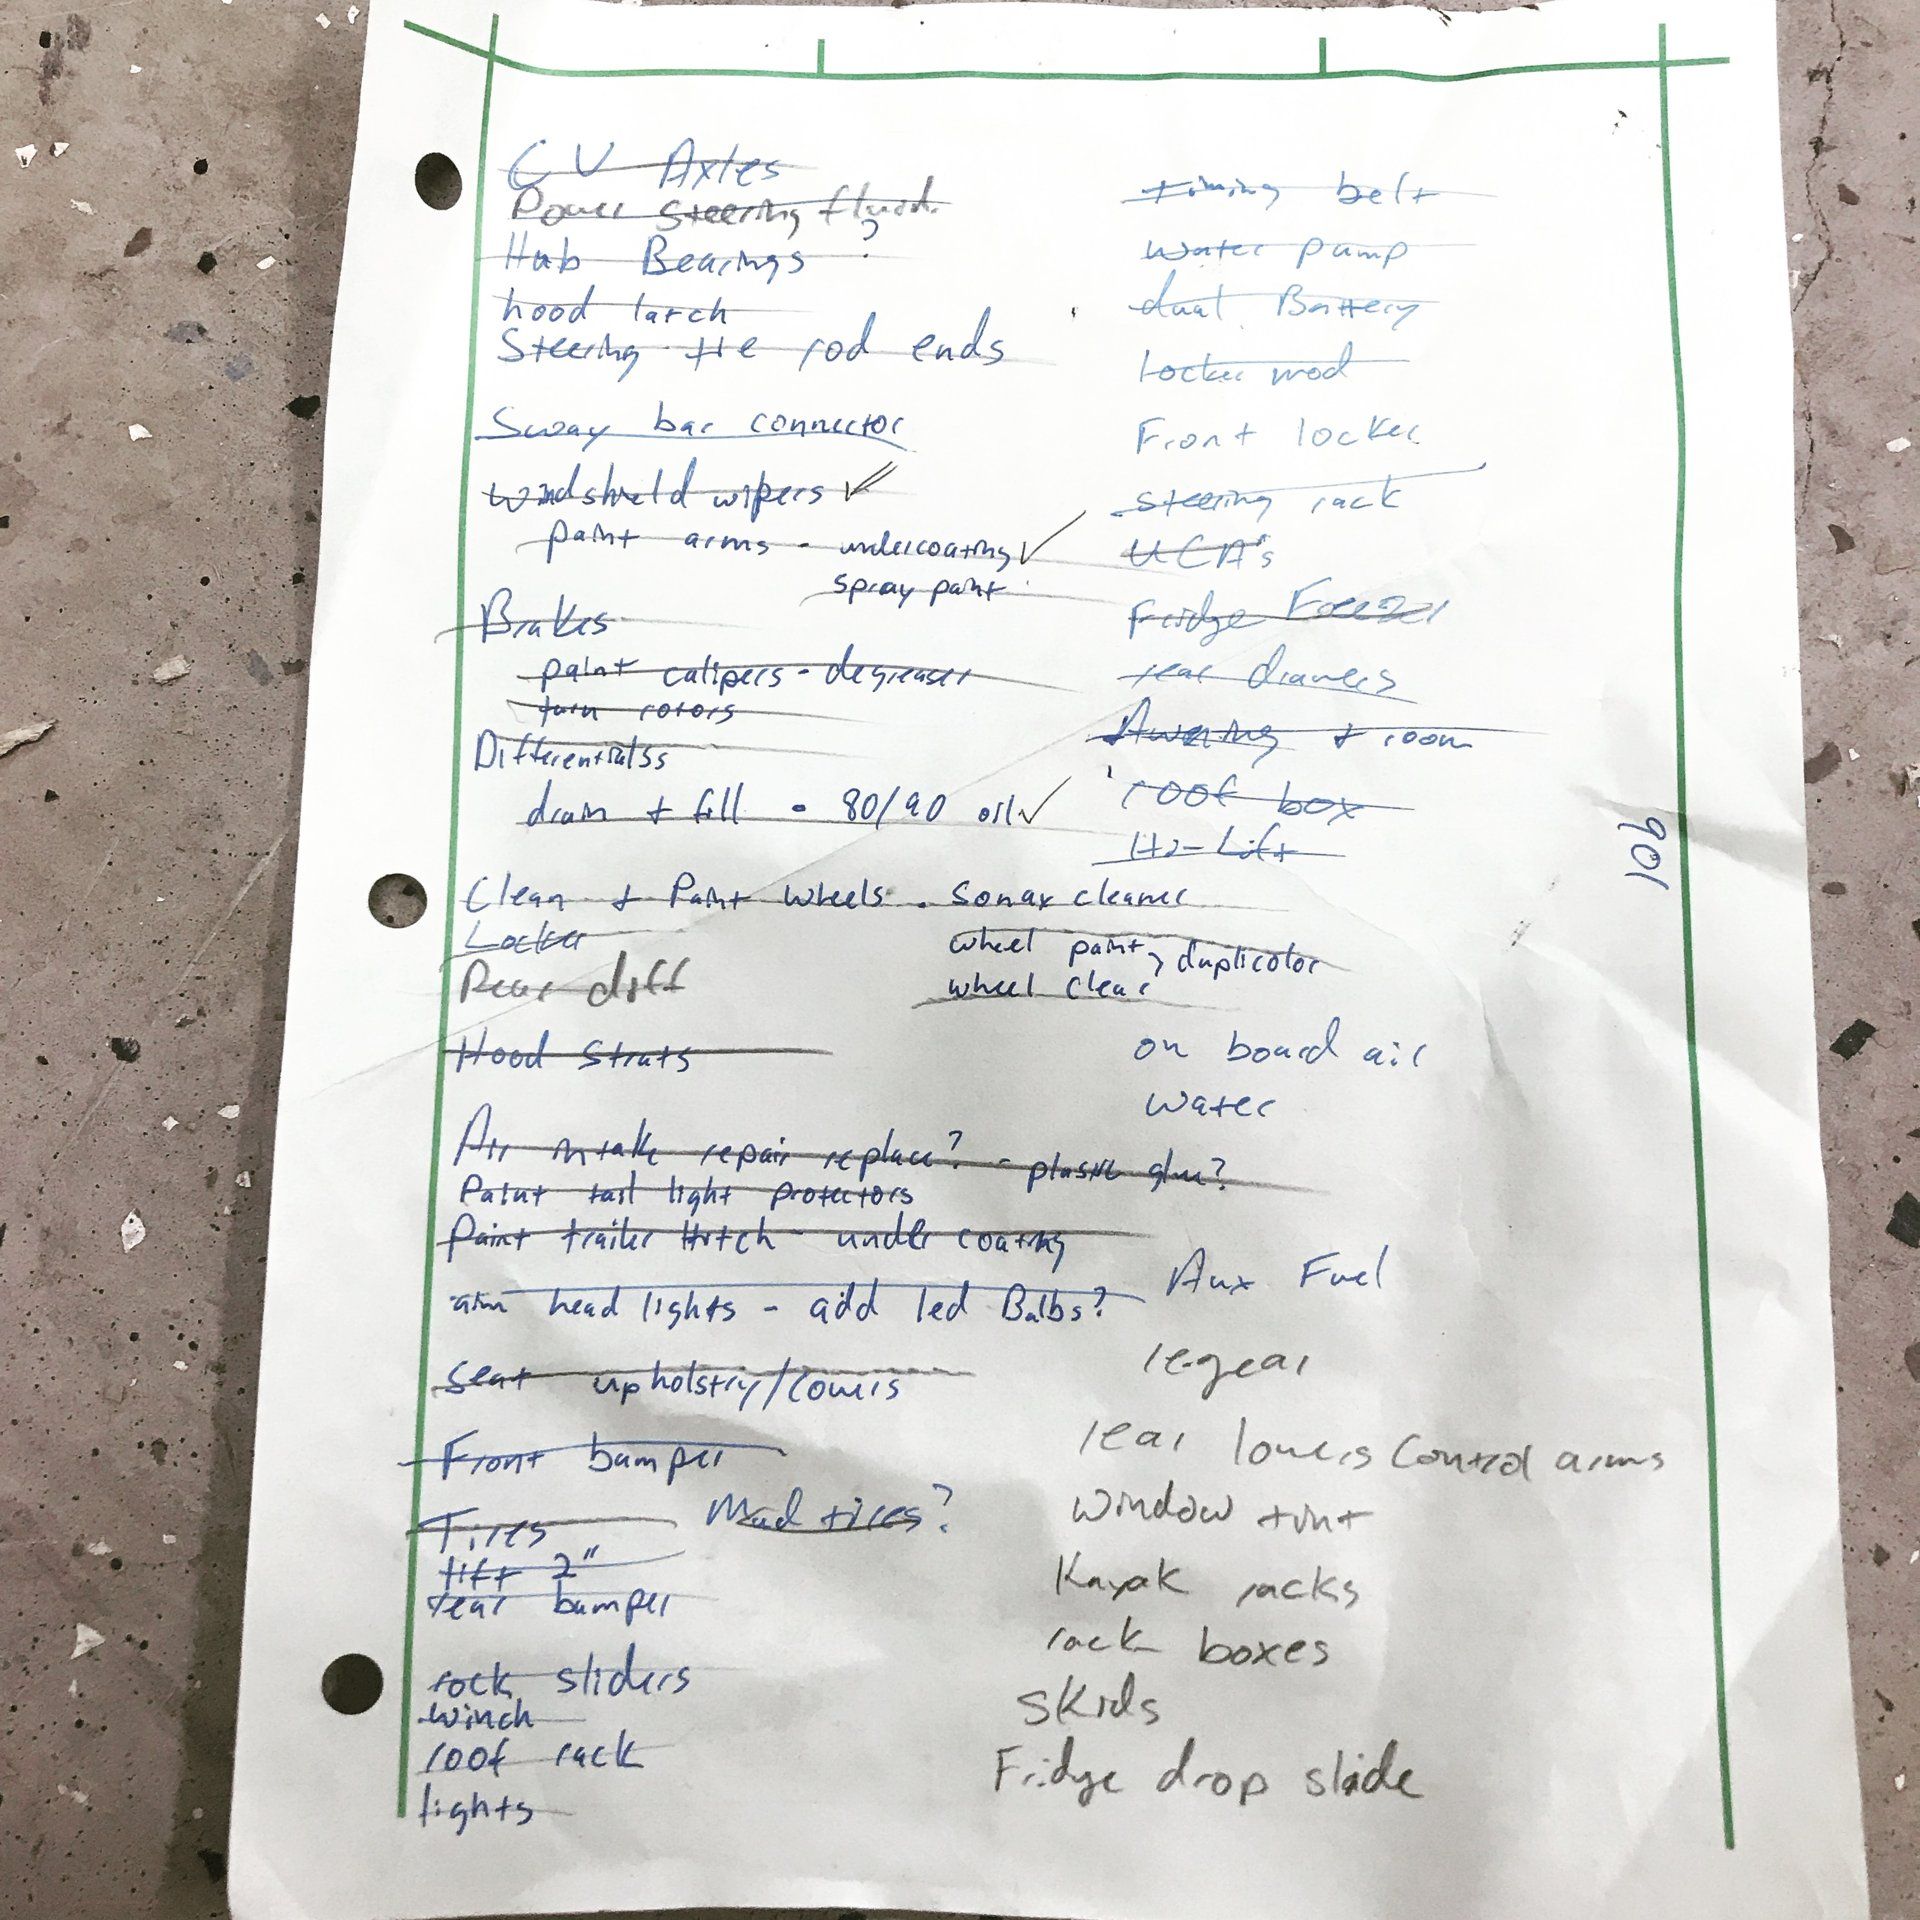 CV Axles
Power Steering fluid
Hub Bearings ?
hood latch
Steering tie rod ends
Sway bar connector
windshield wipers
paint arms - undercoating
spray paint
Brakes
paint calipers - degreaser
turn rotors
Differentialss
drain + fill - 80/90 oil
Clean + Paint Wheels - Sonax cleaner
wheel paint, duplicolor
wheel clear
Locker
Rear diff
Hood Struts
Air intake repair replace? - plastic glue?
Paint tail light protectors
Paint trailer Hitch - under coating
aim head lights - add led Bulbs?
seat upholstry/covers
Front bumper
Tires Mud tires?
lift 2"
rear bumper
rock sliders
winch
roof rack
lights
timing belt
water pump
dual Battery
locker mod
Front locker
steering rack
UCA's
Fridge Freezer
rear drawers
Awning + room
roof box
Hi-Lift
on board air
water
Aux Fuel
re-gear
rear lowers Control arms
window tint
Kayak racks
rack boxes
Skids
Fridge drop slide
901